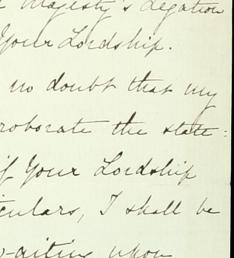 Majesty's Legation
Your Lordship.
no doubt that my
roborate the state:
if Your Lordship
iculars, I shall be
waiting upon